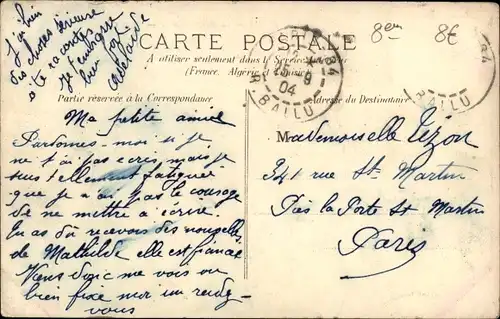 J'ai bien
des choses sérieuse
à te raconter
je t'embrasse
bien fort
Adelaïde
CARTE POSTALE
A utiliser seulement dans le Service intérieur
(France, Algérie et Tunisie)
Partie réservée à la Correspondance
Adresse du Destinataire
R. BALLU
04
84
R. BALLU
8em
8€
Ma petite amie
Pardonnes-moi si je
ne t'ai pas ecris, mais je
suis tellement fatiguée
que je n'ai pas le courage
de me mettre à écrire.
Tu as dû recevoir des nouvelles
de Mathilde elle est fiancé
Viens donc me voir ou
bien fixe moi un rendez-
vous
Mademoiselle Tézon
341 rue St Martin
Près la Porte St Martin
Paris